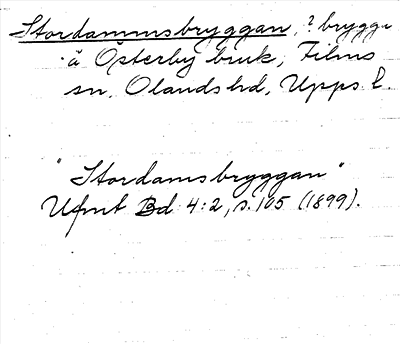 Stordammsbryggan, ? brygga
å Österby bruk, Films
sn, Olands hd, Upps l.
"Stordamsbryggan"
Ufmt Bd 4:2, s. 105 (1899).